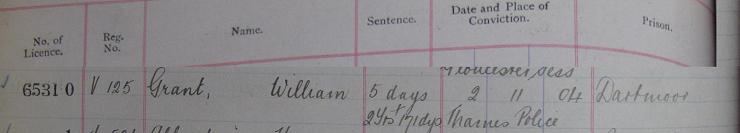 No. of Licence. Reg. No. Name. Sentence. Date and Place of Conviction. Prison.
Gloucester Sess
65310 V 125 Grant, William 5 days 2 11 04 Dartmoor
2 Yrs 171 dys Thames Police